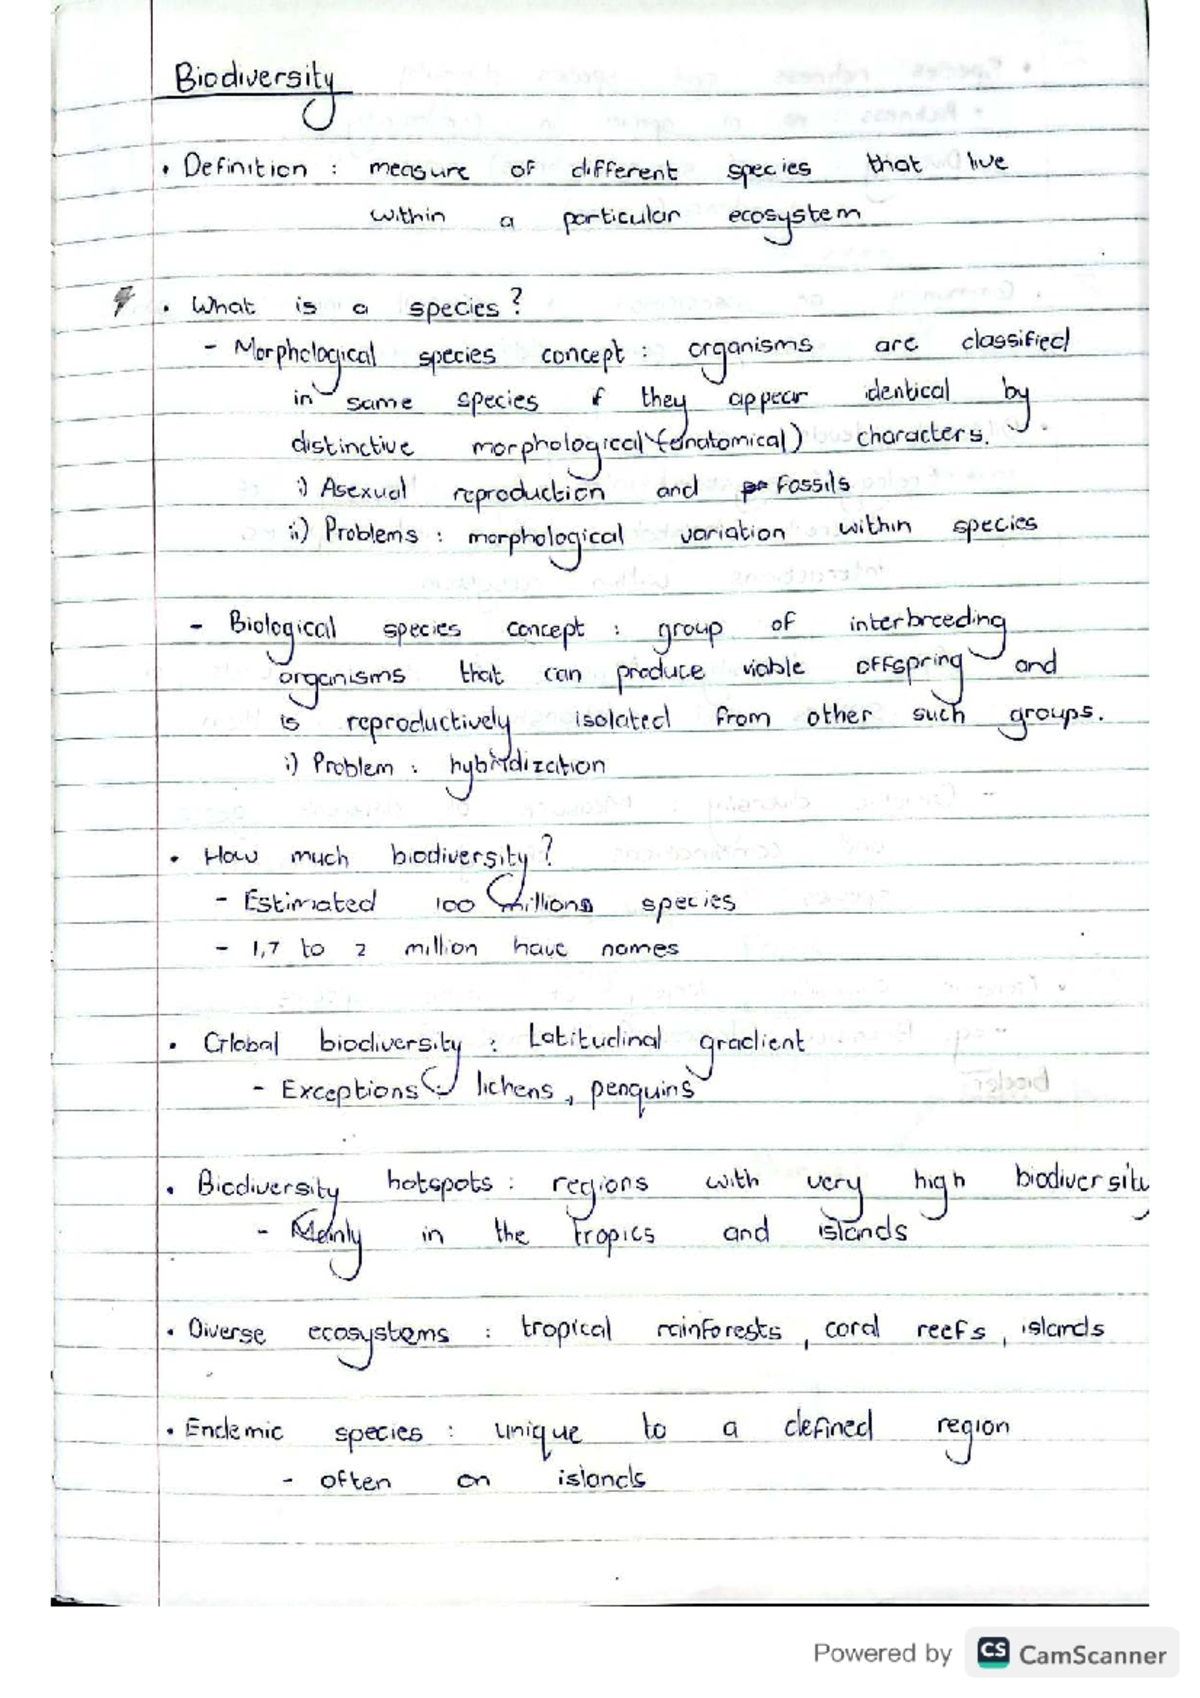 Biodiversity
• Definition : measure of different species that live
within a particular ecosystem
• What is a species?
- Morphological species concept : organisms are classified
in same species if they appear identical by
distinctive morphological (anatomical) characters.
i) Asexual reproduction and Fossils
ii) Problems : morphological variation within species
- Biological species concept : group of interbreeding
organisms that can produce viable offspring and
is reproductively isolated from other such groups.
i) Problem : hybridization
• How much biodiversity?
- Estimated 100 millions species
- 1,7 to 2 million have names
• Global biodiversity : Latitudinal gradient
- Exceptions : lichens, penguins
• Biodiversity hotspots : regions with very high biodiversity
- Mainly in the tropics and islands
• Diverse ecosystems : tropical rainforests, coral reefs, islands
• Endemic species : unique to a defined region
- often on islands
Powered by CS CamScanner